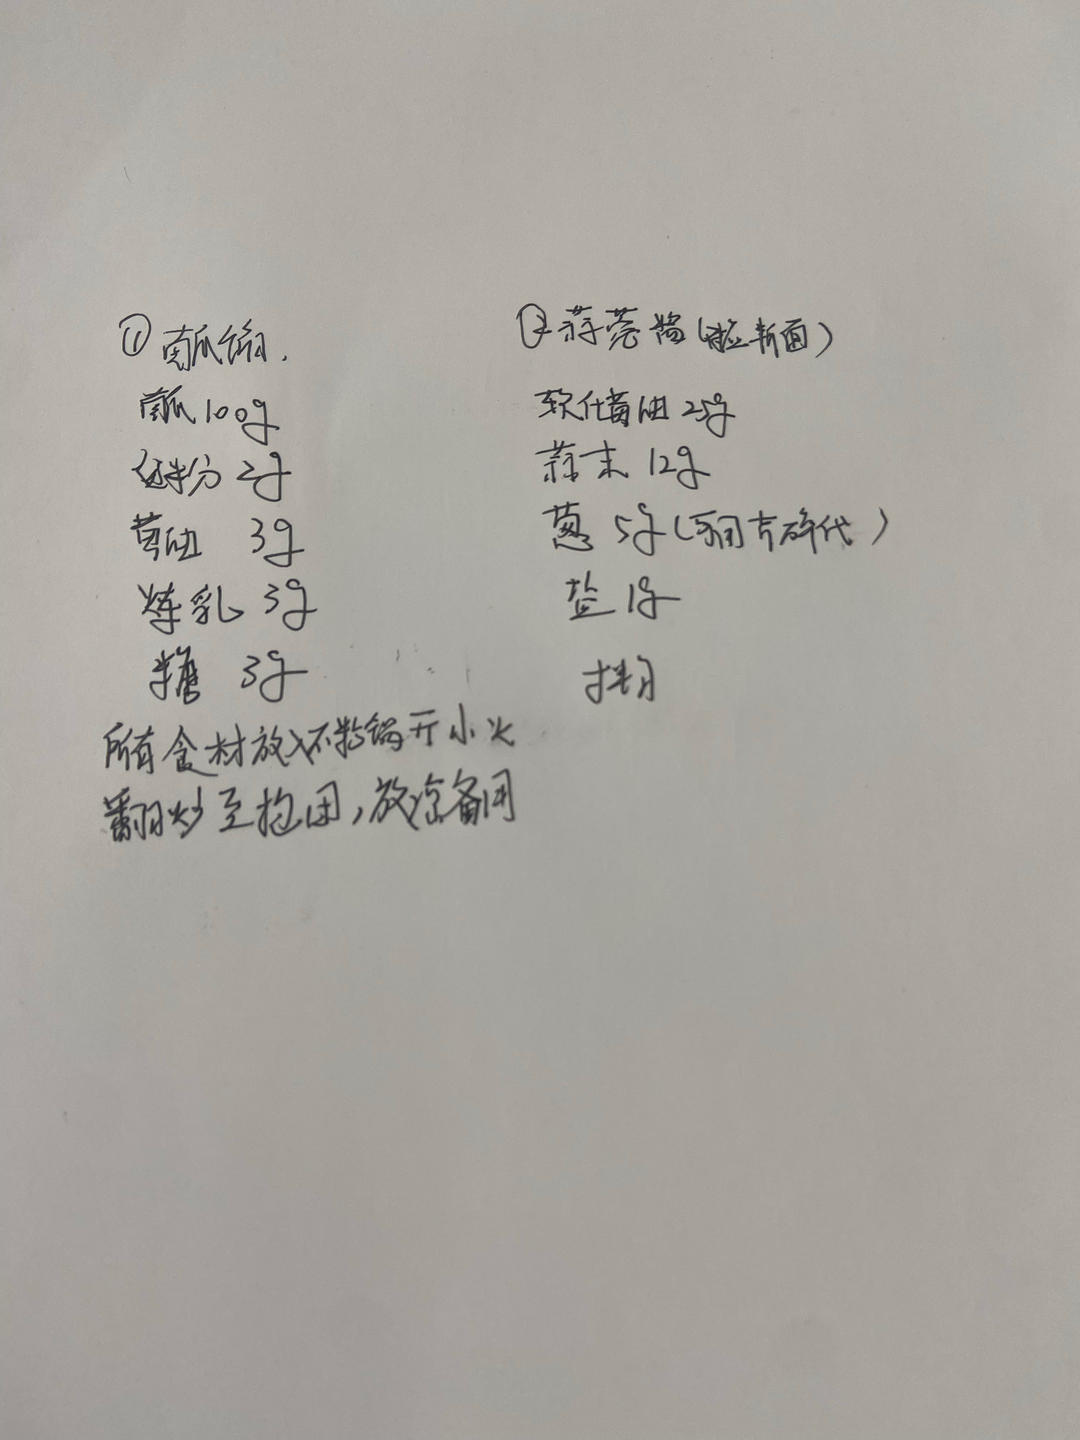 ① 南瓜馅.
南瓜100g
低粉 2g
黄油 3g
炼乳 3g
糖 3g
所有食材放入不粘锅开小火
翻炒至抱团,放凉备用
② 蒜蓉酱(面)
软化黄油 25g
蒜末 12g
葱 5g(可用芹碎代)
盐 1g
拌匀